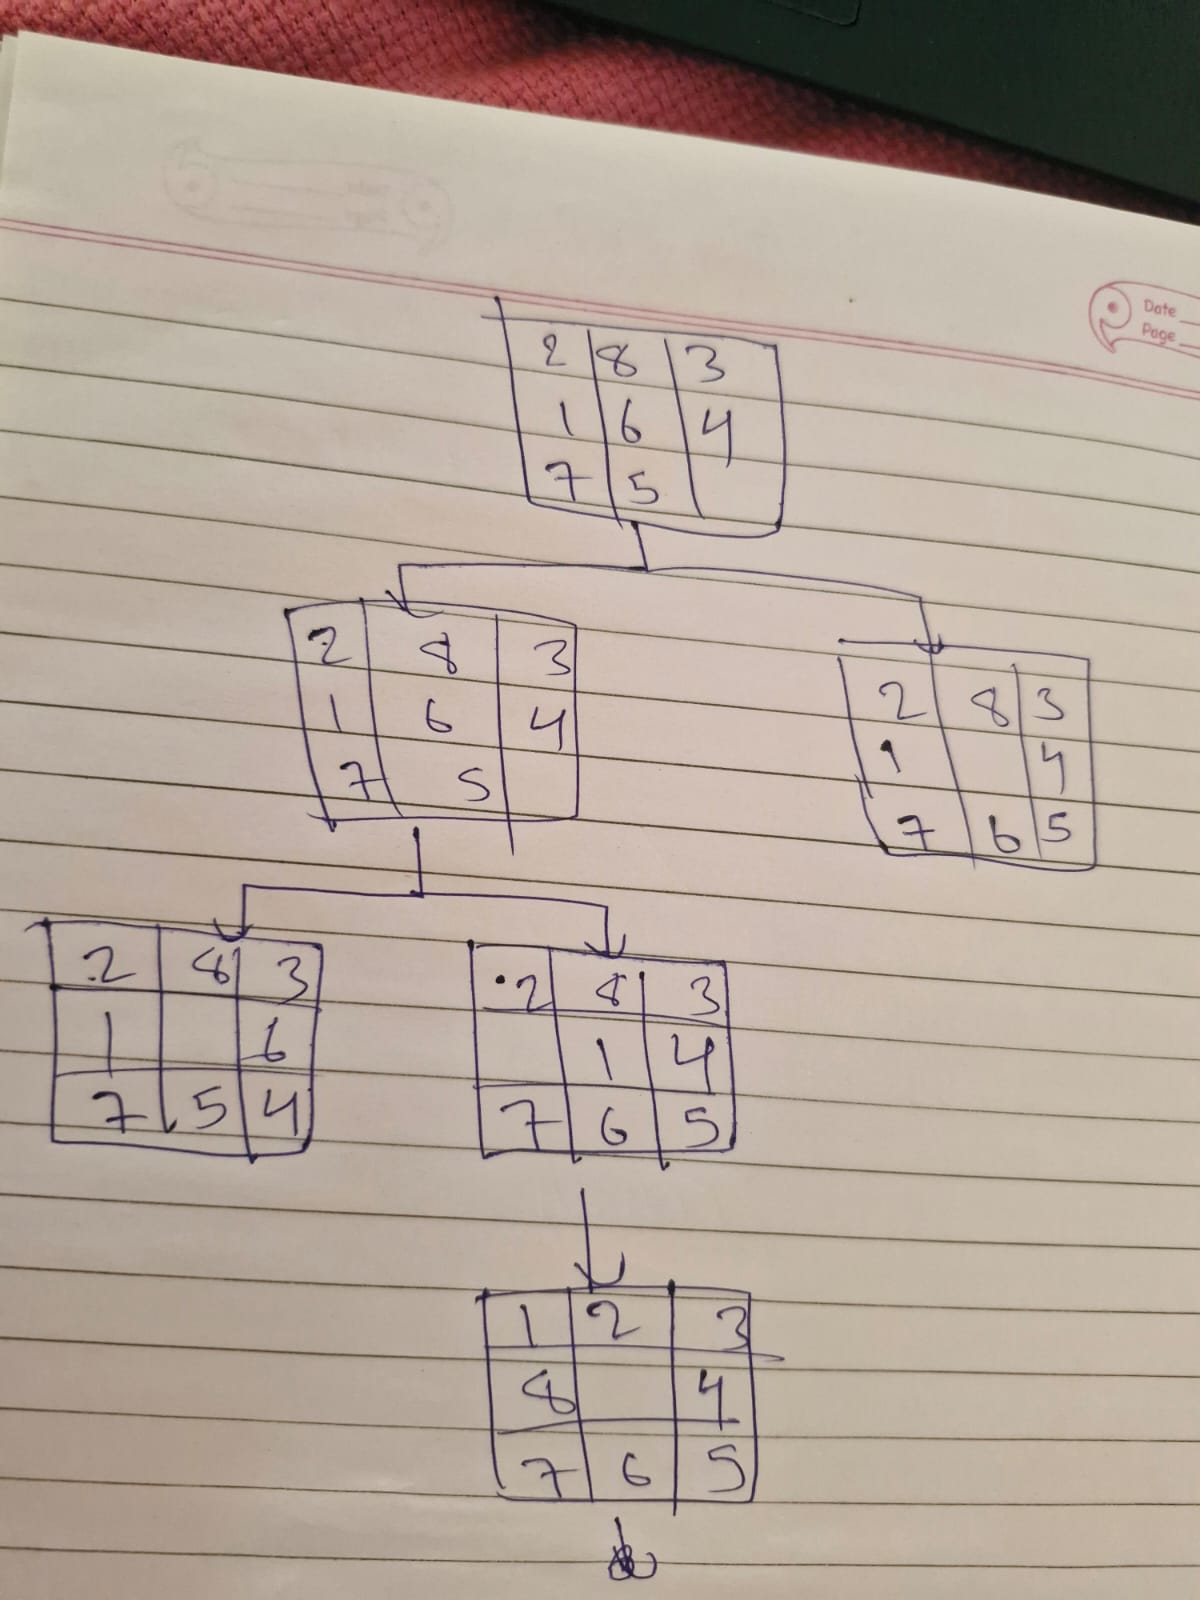 Date
Page
2 8 3
1 6 4
7 5
2 8 3
1 6 4
7 5
2 8 3
1 4
7 6 5
2 8 3
1 6
7 5 4
2 8 3
1 4
7 6 5
1 2 3
8 4
7 6 5